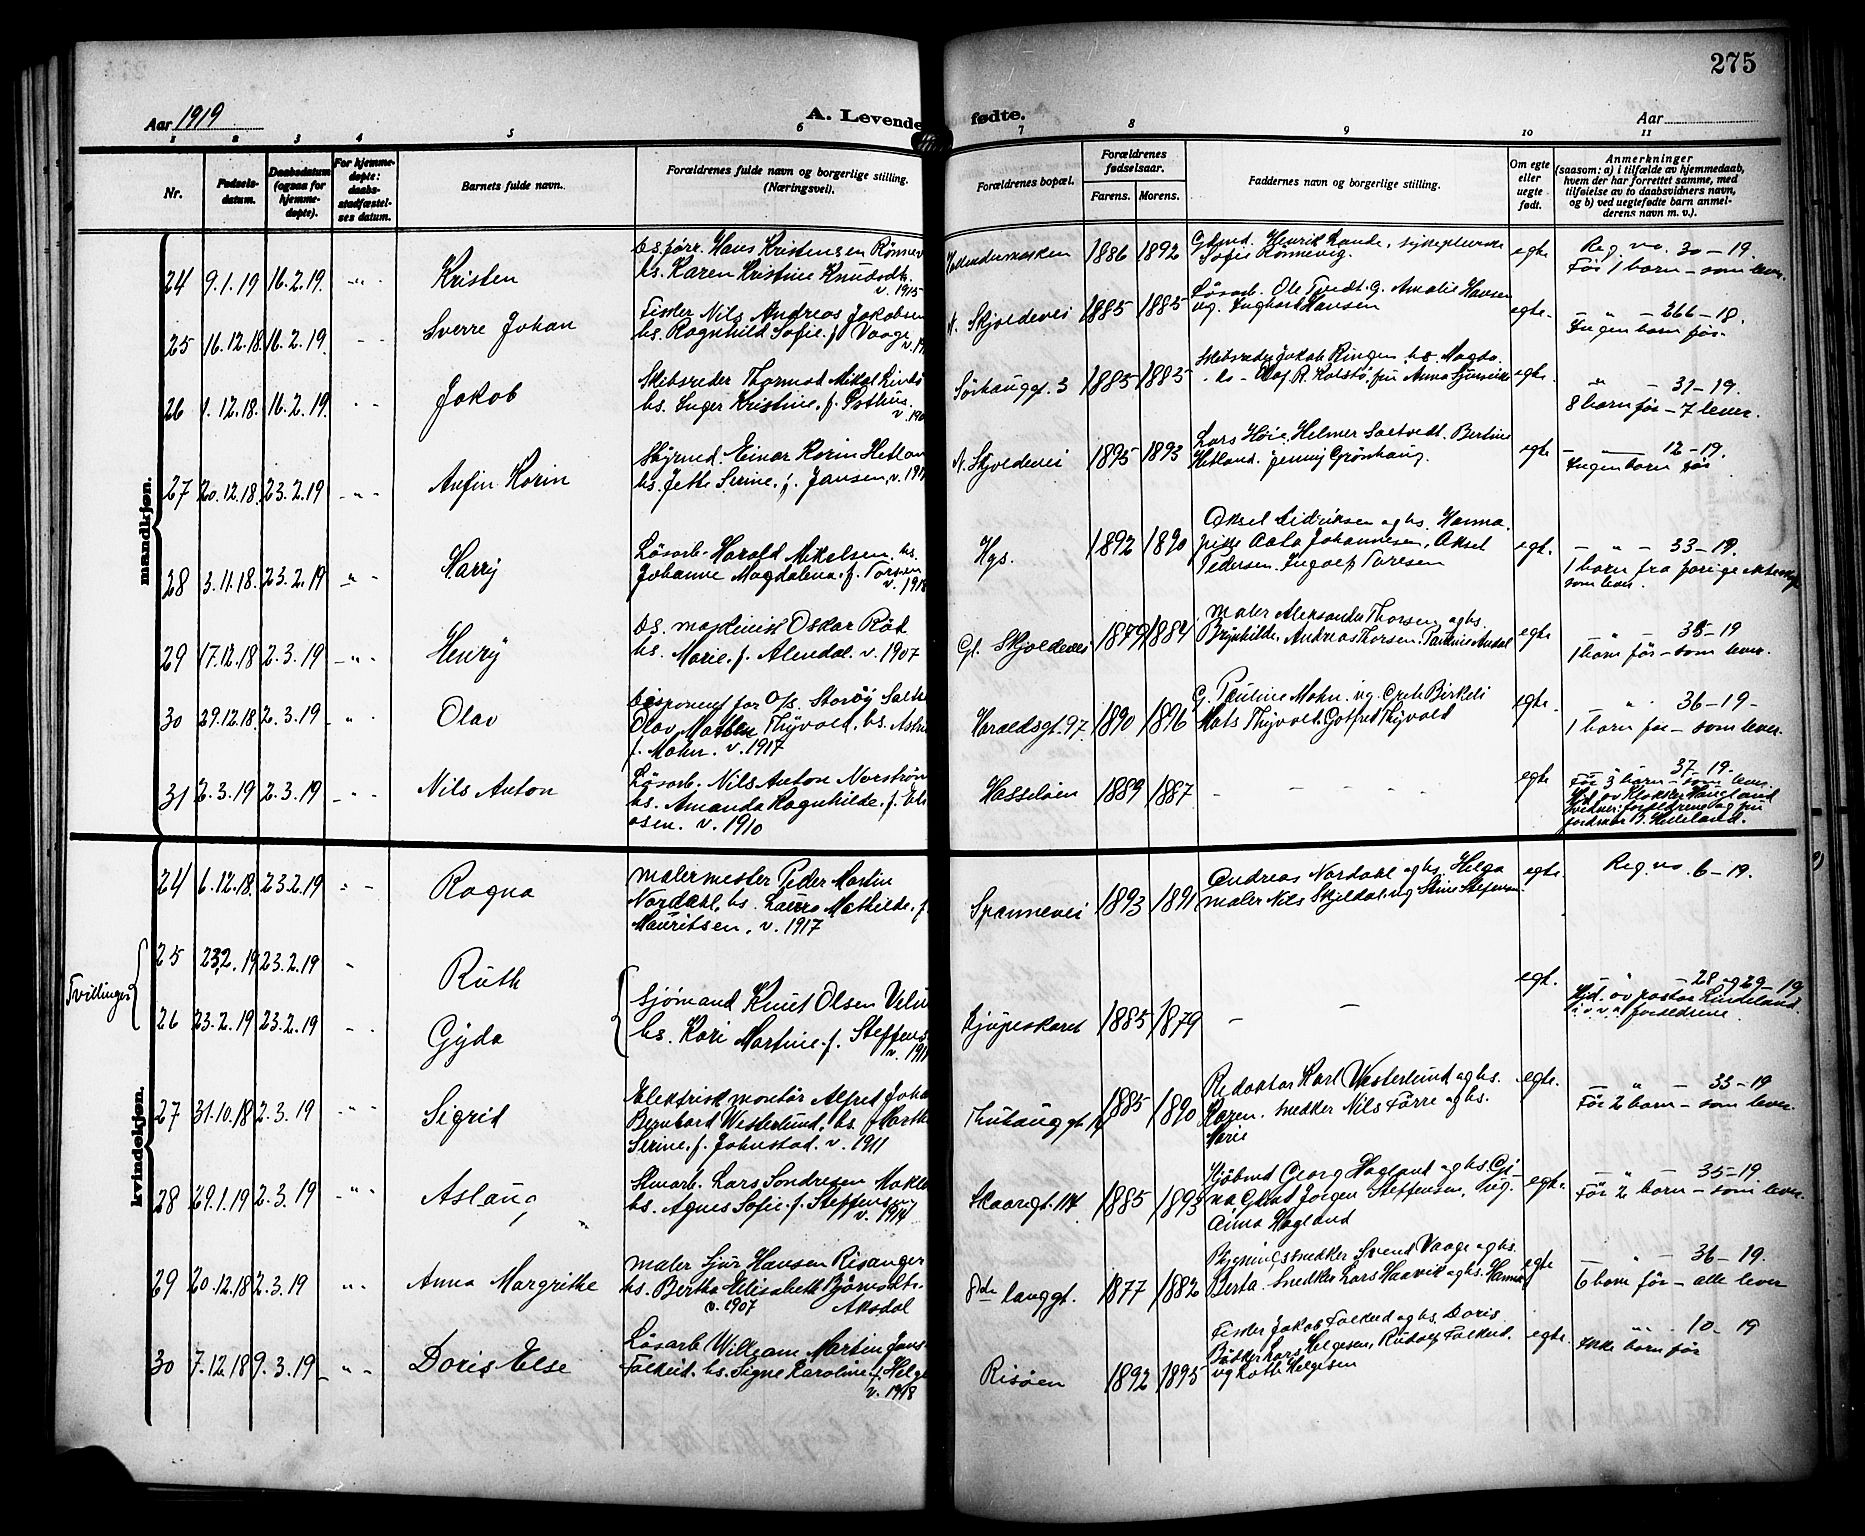 275
Aar 1919
A. Levende fødte.
Aar
1 2 3 4 5 6 7 8 9 10 11
Nr.
Fødsels-
datum.
Daabsdatum
(ogsaa for
hjemme-
døpte).
For hjemme-
døpte:
daabs-
stadfæstel-
ses datum.
Barnets fulde navn.
Forældrenes fulde navn og borgerlige stilling.
(Næringsvei).
Forældrenes bopæl.
Forældrenes
fødselsaar.
Farens. Morens.
Faddernes navn og borgerlige stilling.
Om egte
eller
uegte
født.
Anmerkninger
(saasom: a) i tilfælde av hjemmedaab,
hvem der har forrettet samme, med
tilføielse av to daabsvidners navn,
og b) ved uegtefødte barn anmel-
derens navn m. v.).
mandkjøn.
24 9.1.19 16.2.19. Kristen
Hans Kristensen
hs. Karen Kristine Knudsdtr.
v. 1915
1886 1892
Gbmd. Henrik Lande,
Sofie Rönnevig.
egte
Reg. no. 30-19.
Før 1 barn - som lever.
25 16.12.18. 16.2.19. Sverre Johan
Fisker Nils Andreas Jakobsen
hs. Ragnhild Sofie. f. Vaage
N. Skjoldevei 1885 1885
Løsarb. Ole Tvedt. g. Amalie Hansen
ug. Hansen
egte.
- " - 266-18.
Ingen barn før.
26 1.12.18. 16.2.19. Jakob
Skibsreder Thormod Mikal
hs. Inger Kristine. f. Østhus.
Sørhauggt. 3 1885 1885
Skibsreder Jakob Ringen hs. Magda
egte.
" - 31-19.
8 barn før - 7 lever.
27 20.12.18. 23.2.19 Anfin Korin
Styrmd. Einar Korin
hs. Jette Serine. f. Jansen. v.
N. Skjoldevei 1895 1893
Lars Høie. Helmer Saltvedt. Bertine
Hetland. Jenny Grønhaug.
egte
- 12-19.
Ingen barn før
28 3.11.18. 23.2.19 " - Harry
Løsarb. Harald Mikelsen. hs.
Johanne Magdalena. f.
v. 1918
Hgs. 1892 1890
Aksel Didriksen og hs. Hanna.
pike Johannesen, Aksel
Pedersen. Ingolf Toresen
egt.
- " - 33-19.
1 barn fra forrige
som lever.
29 17.12.18 2.3.19 - " - Henry
bs. maskinist Oskar Röd
hs. Marie. f. Alendal. v. 1907
Gl. Skjoldevei 1879 1884
Maler Aleksander Thorsen og hs.
Brynhilde, Andreas Thorsen.
egte
- " - 35-19
1 barn før - som lever.
30 29.12.18. 2.3.19 - " - Olav
Disponent for A/s. Storöy
Olav Thyvold. hs.
f. Mohn. v. 1917
Haraldsgt. 97. 1890 1896
G. Pauline Mohn. ug. Birkeli
Mats Thyvold. Gotfred Thyvold
egte.
- " 36-19-
1 barn før - som lever.
31 2.3.19 2.3.19 - " - Nils Anton
Løsarb. Nils Anton Norström
hs. Amanda Ragnhilde. f.
osen. v. 1910
Hasseløen 1889 1887 - - - - - -
egte
37-19.
Før 3 barn - som lever
Hjd. av Klokker Haugland
Vidner: forældrene og
B. Helleland.
24 6.12.18. 23.2.19 " - Ragna
Malermester Peder Martin
Nordahl. hs. Laura Mathilde. f.
Mauritsen. v. 1917
Spannevei 1893 1891
Andreas Nordahl og hs. Helga
maler Nils Skjeldal. ug Stine Steffensen.
egte.
Reg. no. 6-19.
Tvillinger
25 23.2.19 23.2.19 " Ruth
26 23.2.19 23.2.19 " - Gyda
Sjømand Knut Olsen
hs. Kari Martine. f.
1885 1879 - -
egt.
- " - 28 og 29-19
Hjd. av pastor Lindeland
forældrene.
kvindekjøn.
27 31.10.18 2.3.19 " - Sigrid
Elektrisk montör Alfred
Bernhard Westerlund. hs.
Serine. f. Johnstad. v. 1911
1885 1890
Redaktør Karl Westerlund og hs.
Karen. Snedker Nils Førre og hs.
Marie
egte.
- " - 33-19
Før 2 barn - som lever.
28 29.1.19 2.3.19 - " - Aslaug
Stuearb. Lars Sondresen
hs. Agnes Sofie. f. Steffensen
v. 1914
Skaaregt. 114 1885 1893
Kjöbmd Georg Hagland og hs.
Gbmd Jörgen Steffensen, ug.
Hagland
egte.
- " - 35-19.
Før 2 barn - som lever.
29 20.12.18 2.3.19 " - Anna Margrithe
Maler Sjur Hansen Risanger
hs. Bertha Elisabeth Bjørnsdtr.
v. 1907 Aksdal
langgt. 1877 1882
Bygningssnedker Svend Vaage og hs.
Berta. Snedker Lars Haavik og hs. Hanna
egte
- " - 36-19.
6 barn før - alle lever
30 7.12.18 9.3.19 - " - Doris Else
Løsarb William Martin
Falkeid. hs. Signe Karoline f.
v. 1918
Risöen 1892 1895
Fisker Jakob Falkeid og hs. Doris.
Lars Helgesen, Rudolf Falkeid.
ug Lotte Helgesen
egte.
" - 10-19
Ikke barn før